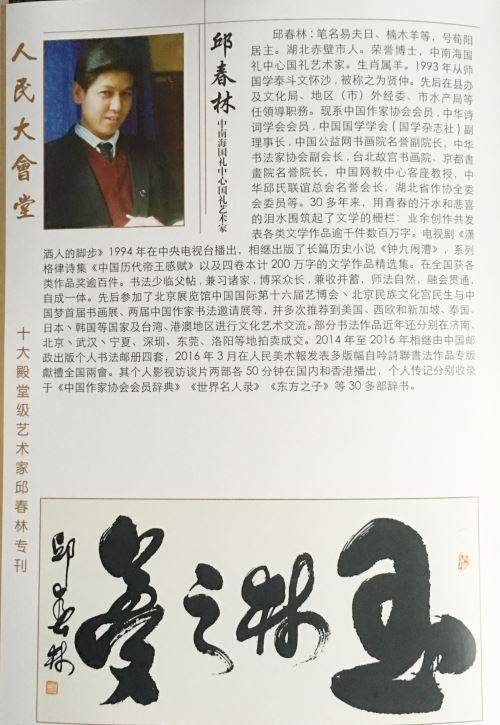 人民大會堂
十大殿堂级艺术家邱春林专刊
邱春林
中南海国礼中心国礼艺术家
邱春林：笔名易夫日、楠木羊等，号荀阳
居主。湖北赤壁市人。荣誉博士，中南海国
礼中心国礼艺术家。生肖属羊。1993年从师
国学泰斗文怀沙，被称之为贤仲。先后在县办
及文化局、地区（市）外经委、市水产局等
任領導职務。现系中国作家协会会员，中华诗
词学会会员，中国国学学会(国学杂志社)副
理事长，中国公益网书画院名誉副院长，中华
书法家协会副会长，台北故宫书画院、京都書
畫院名誉院长，中国网教中心客座教授，中
华邱氏联谊总会名誉会长，湖北省作协全委
会委员等。30多年来，用青春的汗水和悲喜
的泪水围筑起了文学的栅栏：业余创作共发
表各类文学作品逾千件数百万字。电视剧《潇
洒人的脚步》1994年在中央电视台播出，相继出版了长篇历史小说《钟九闹漕》，系列
格律诗集《中国历代帝王感赋》以及四卷本计200万字的文学作品精选集。在全国获各
类作品奖逾百件。书法少临父帖，兼习诸家，博采众长，兼收并蓄，师法自然，融会贯通，
自成一体。先后参加了北京展览馆中国国际第十六届艺博会丶北京民族文化宫民生与中
国梦首届书画展、两届中国作家书法邀请展等，并多次推荐到美国、西欧和新加坡、泰国、
日本丶韩国等国家及台湾、港澳地区进行文化艺术交流。部分书法作品近年还分别在济南、
北京丶武汉丶宁夏、深圳、东莞、洛阳等地拍卖成交。2014年至2016年相继由中国邮
政出版个人书法邮册四套，2016年3月在人民美术報发表多版幅自吟詩聯書法作品专版
獻禮全国兩會。其个人影视访谈片两部各50分钟在国内和香港播出，个人传记分别收录
于《中国作家协会会员辞典》《世界名人录》《东方之子》等30多部辞书。
林之
邱春林